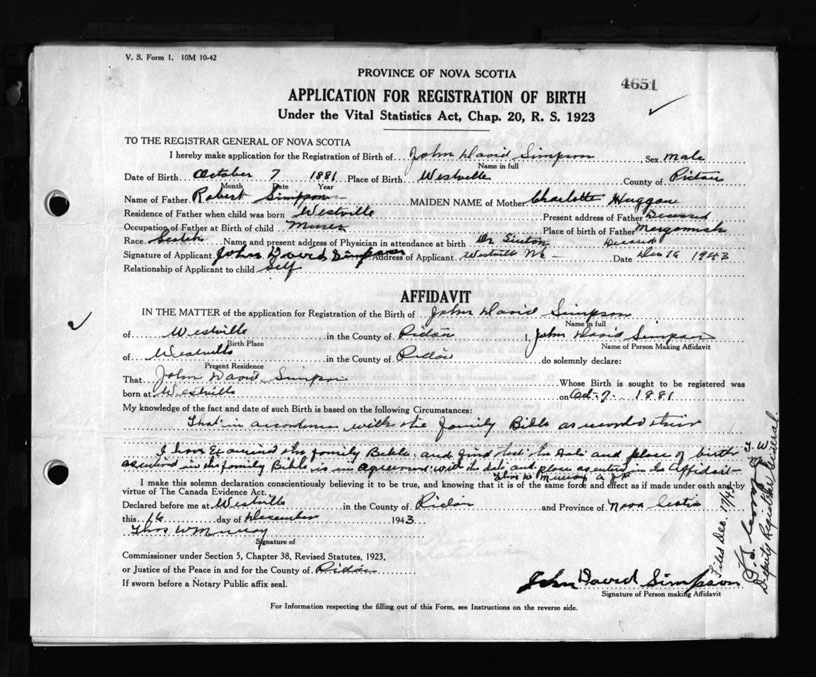 V. S. Form 1. 10M 10-42
PROVINCE OF NOVA SCOTIA
4651
APPLICATION FOR REGISTRATION OF BIRTH
Under the Vital Statistics Act, Chap. 20, R. S. 1923
TO THE REGISTRAR GENERAL OF NOVA SCOTIA
I hereby make application for the Registration of Birth of John David Simpson Sex male
Name in full
Date of Birth October 7 1881 Place of Birth Westville County of Pictou
Month Date Year
Name of Father Robert Simpson MAIDEN NAME of Mother Charlotte Huggan
Residence of Father when child was born Westville Present address of Father Deceased
Occupation of Father at Birth of child Miner Place of birth of Father Merigomish
Race Scotch Name and present address of Physician in attendance at birth Dr Deceased
Signature of Applicant John David Simpson Address of Applicant Westville N.S. Date Dec 16 1943
Relationship of Applicant to child Self
AFFIDAVIT
IN THE MATTER of the application for Registration of the Birth of John David Simpson
Name in full
of Westville in the County of Pictou I, John David Simpson
Birth Place Name of Person Making Affidavit
of Westville in the County of Pictou do solemnly declare:
Present Residence
That John David Simpson Whose Birth is sought to be registered was
born at Westville on Oct. 7 - 1881
My knowledge of the fact and date of such Birth is based on the following Circumstances:
That in accordance with the family Bible as recorded
I have Examined the family Bible and find that the date and place of birth
as in the family Bible is in agreement with the date and place as entered in the Affidavit
Thos W Murray a J.P.
I make this solemn declaration conscientiously believing it to be true, and knowing that it is of the same force and effect as if made under oath and by
virtue of The Canada Evidence Act.
Declared before me at Westville in the County of Pictou and Province of Nova Scotia
this 16 day of December 1943
Thos W Murray
Signature of
Commissioner under Section 5, Chapter 38, Revised Statutes, 1923,
or Justice of the Peace in and for the County of Pictou
If sworn before a Notary Public affix seal.
John David Simpson
Signature of Person making Affidavit
For Information respecting the filling out of this Form, see Instructions on the reverse side.
Filed Dec. 17/43
Deputy Registrar General.